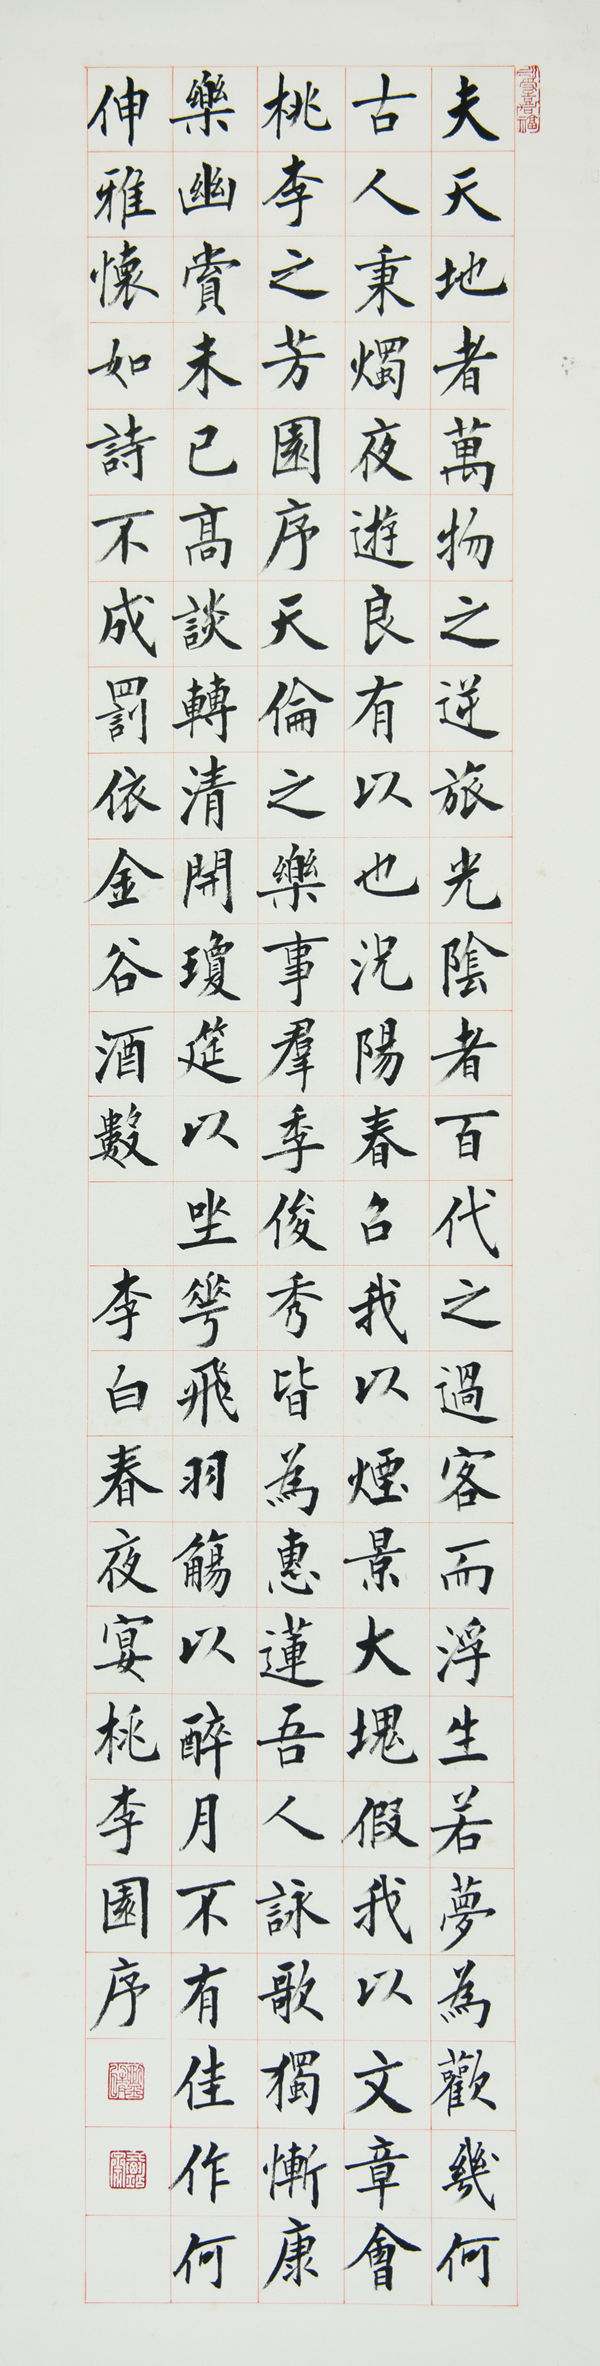 夫天地者萬物之逆旅光陰者百代之過客而浮生若夢為歡幾何
古人秉燭夜遊良有以也況陽春召我以煙景大塊假我以文章會
桃李之芳園序天倫之樂事羣季俊秀皆為惠蓮吾人詠歌獨慚康
樂幽賞未已高談轉清開瓊筵以坐華飛羽觴以醉月不有佳作何
伸雅懷如詩不成罰依金谷酒數
李白春夜宴桃李園序